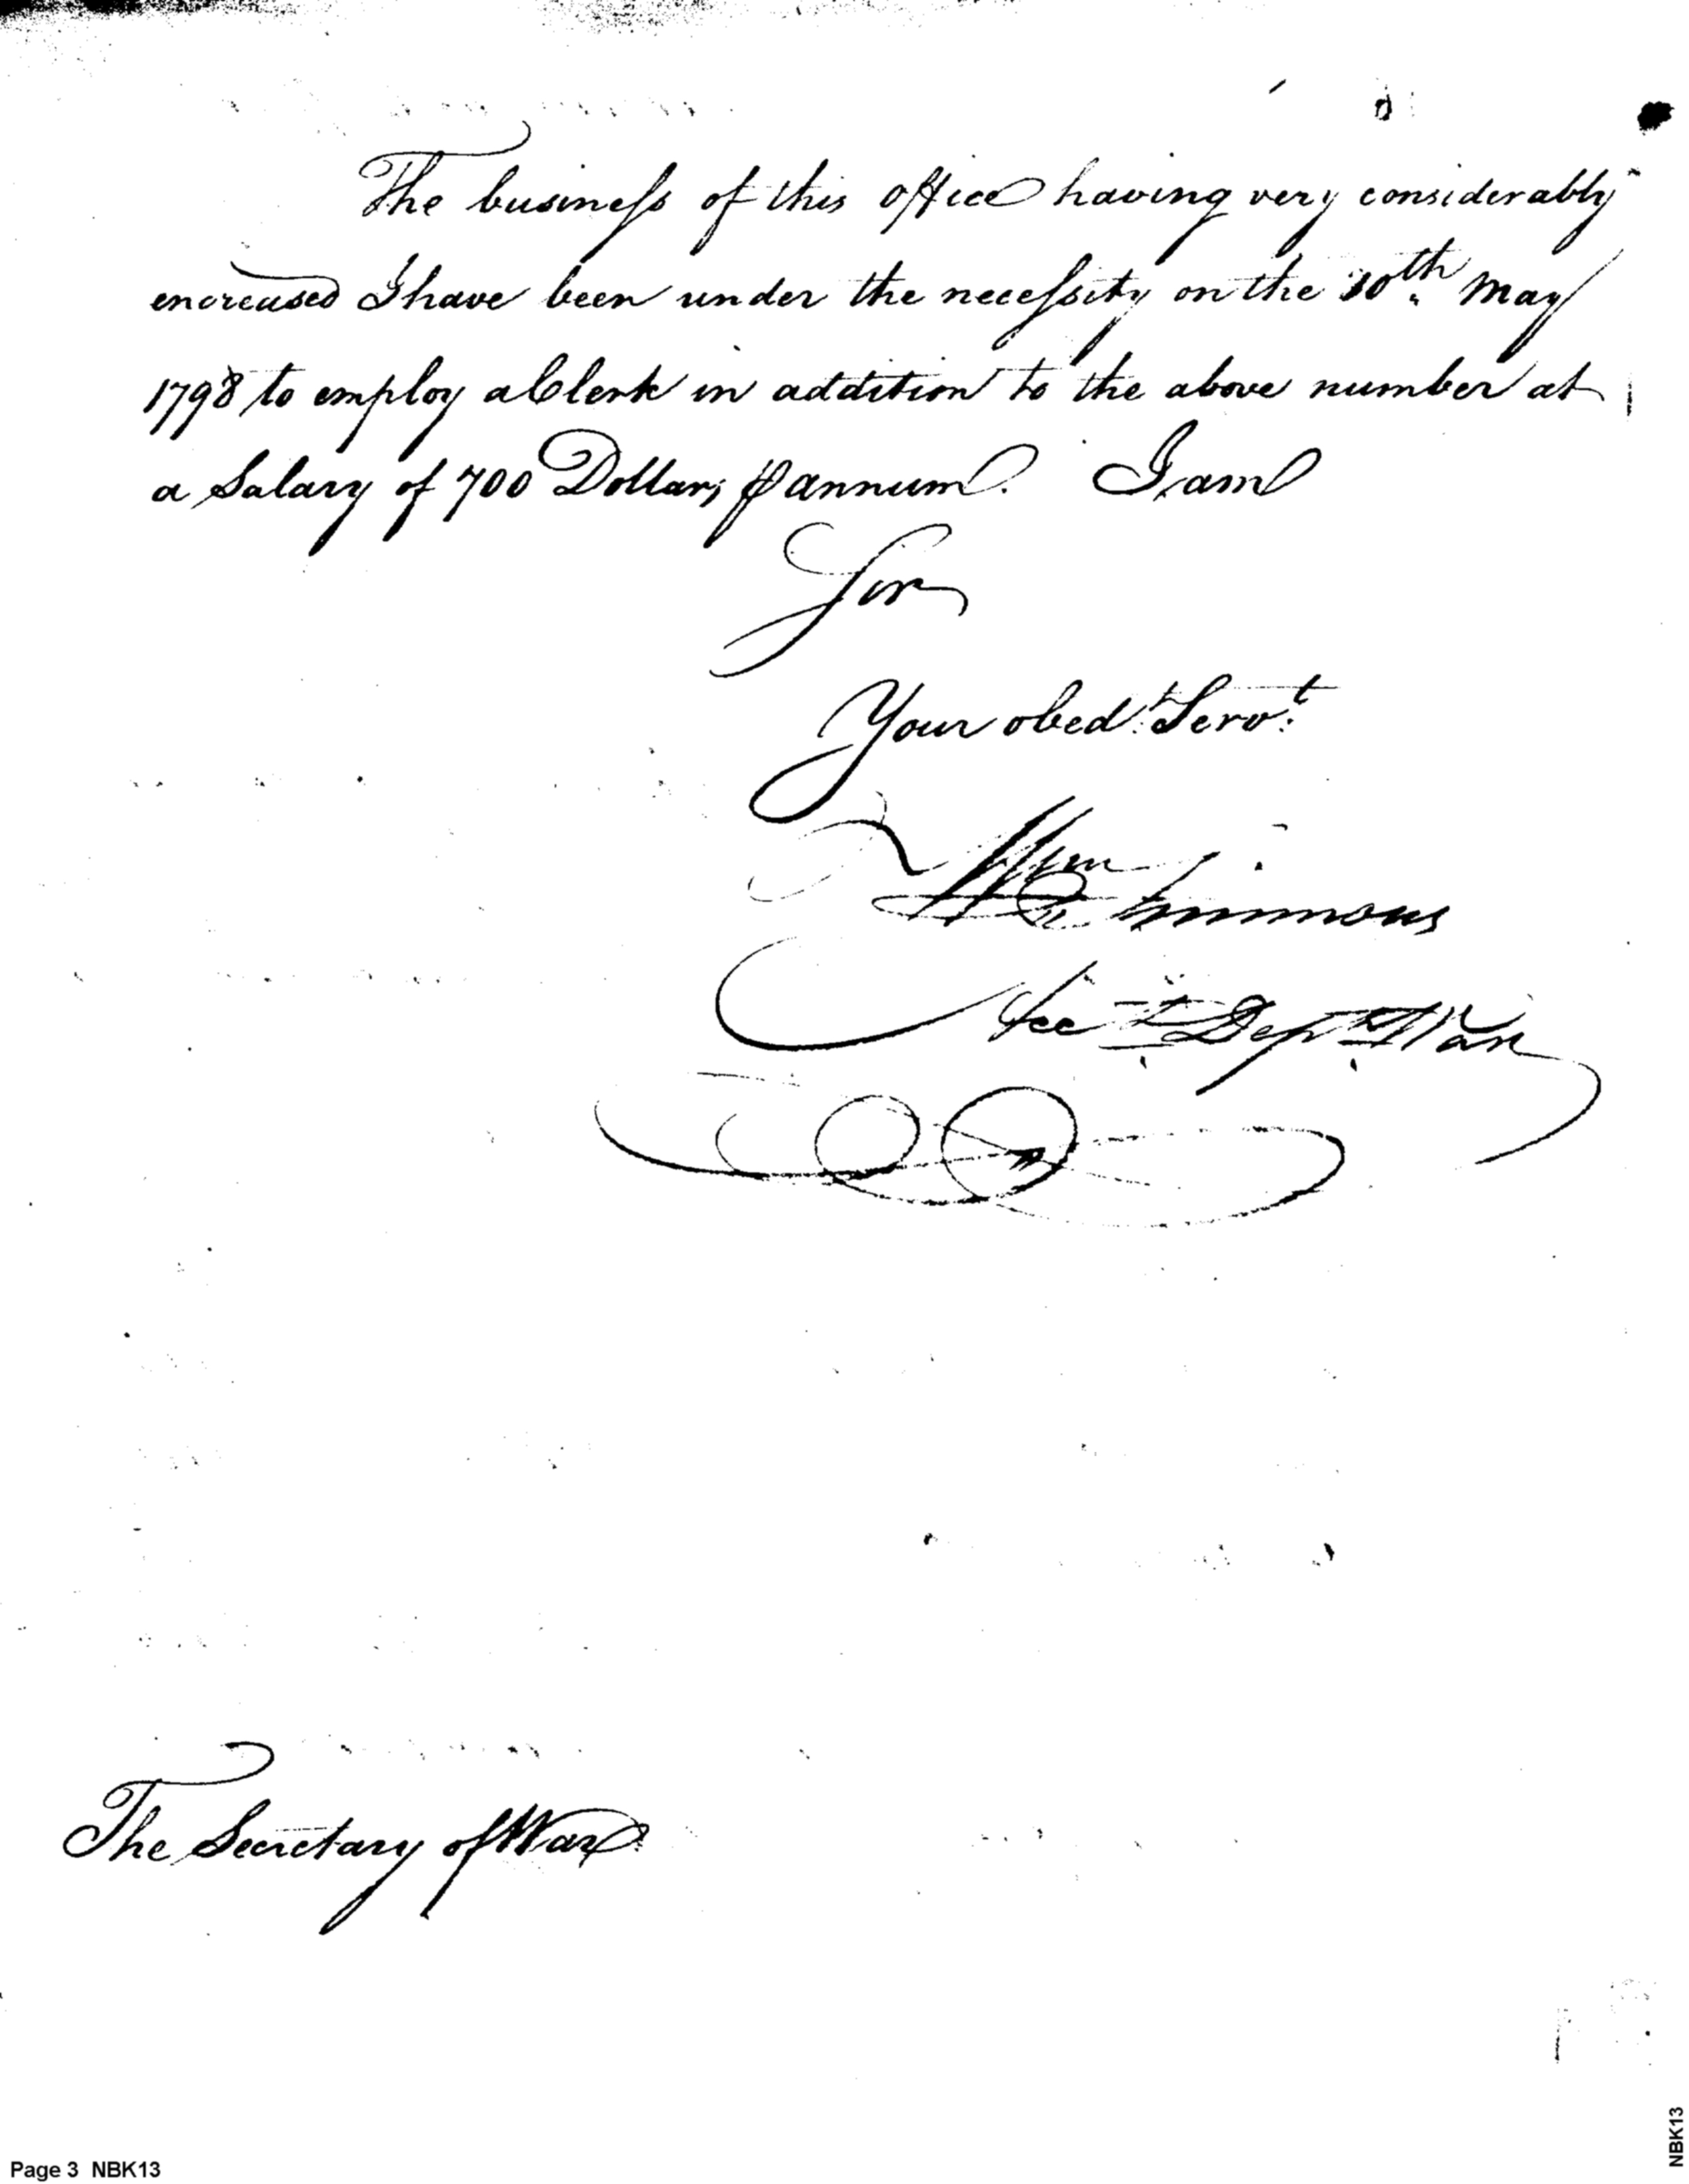 The business of this office having very considerably
encreased I have been under the necessity on the 30th May
1798 to employ a Clerk in addition to the above number at
a Salary of 700 Dollars ⅌ annum. I am
Sir
Your obedt. Servt.
Wm Simmons
Acct. Dept. War
The Secretary of War
Page 3 NBK13
NBK13